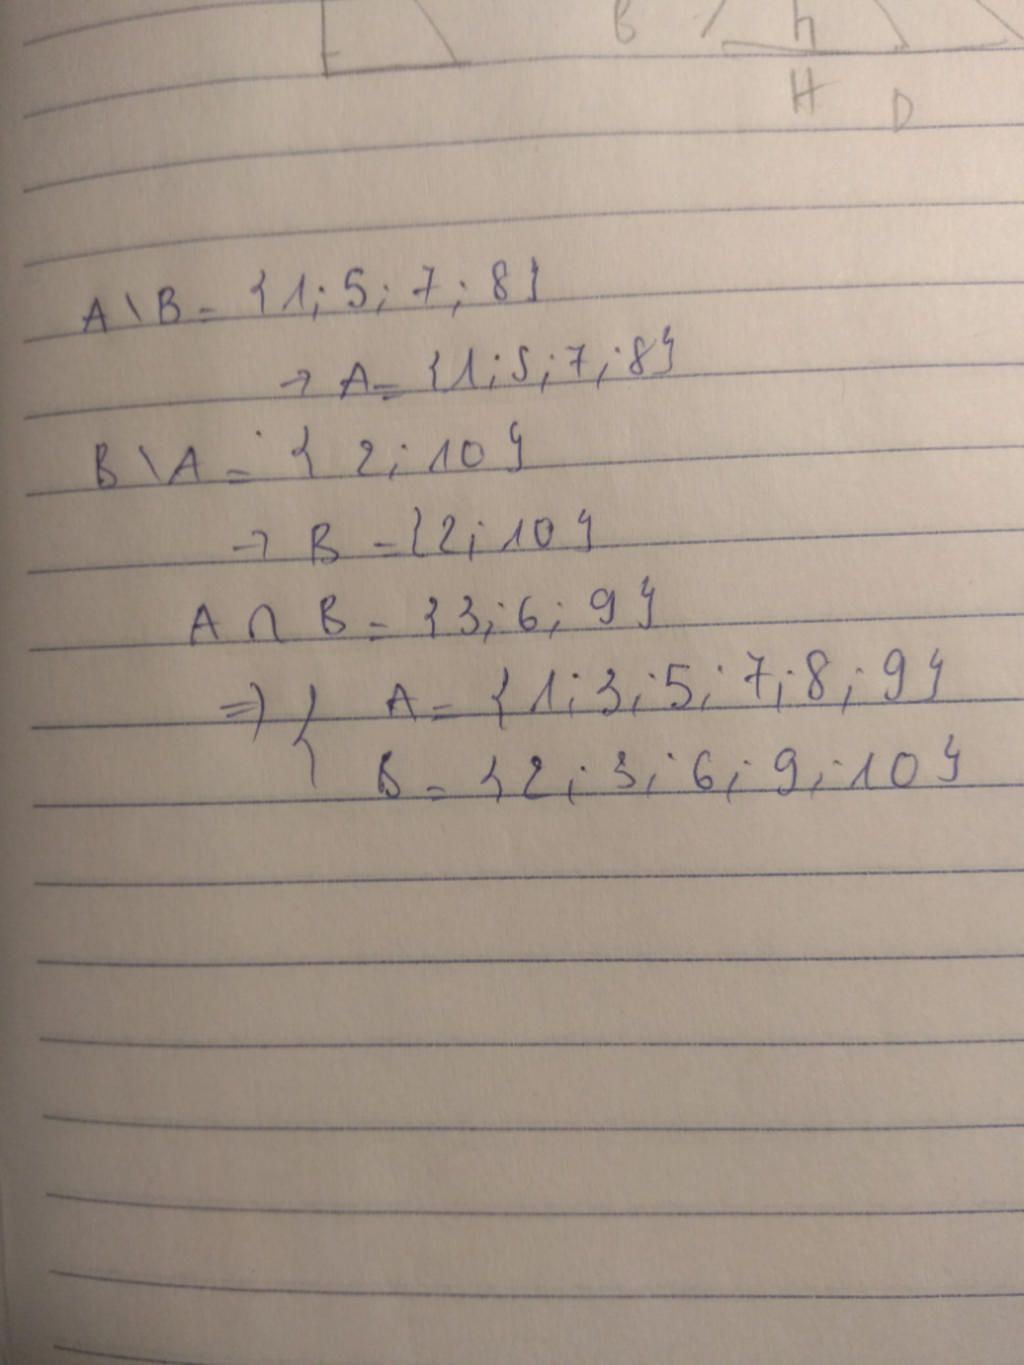 B h
H D
A \ B = {1; 5; 7; 8}
→ A = {1; 5; 7; 8}
B \ A = { 2; 10 }
→ B = {2; 10}
A ∩ B = {3; 6; 9}
⇒ { A = {1; 3; 5; 7; 8; 9}
B = {2; 3; 6; 9; 10}